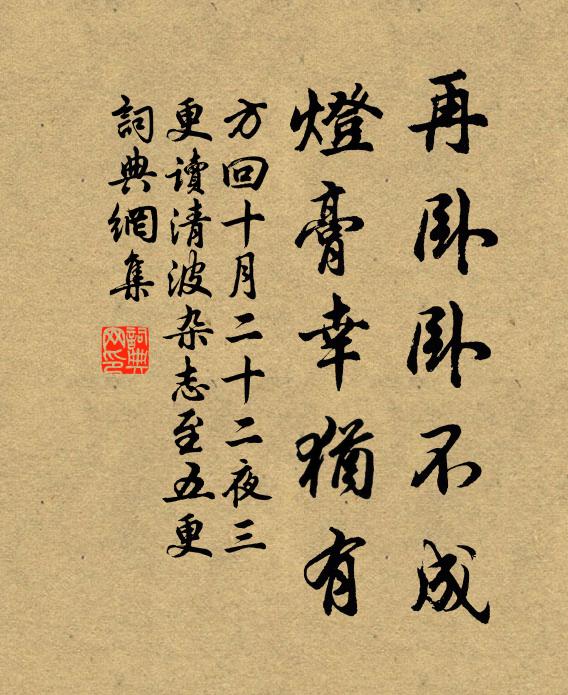 再卧卧不成
燈膏幸猶有
方回十月二十二夜三
更讀清波杂志至五更
詞典網集
詞典
网印